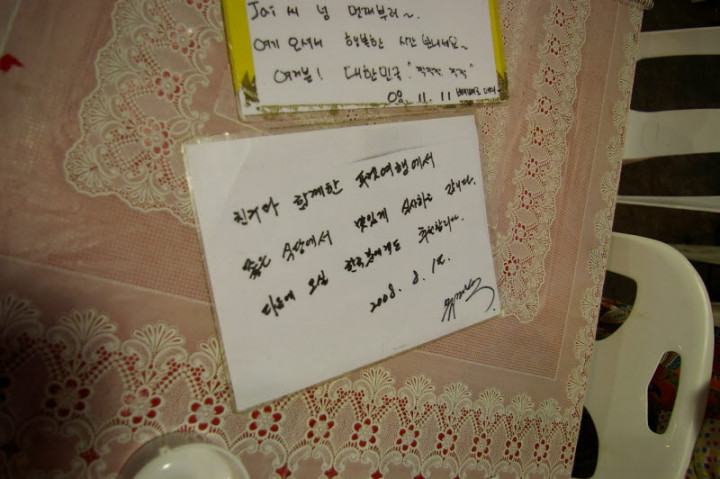 Jai 씨 넘 멋쪄부러~.
에 오셔서 행복한 시간 보내세요~
여러분! 대한민국 "짝짝짝 짝짝"
08. 11. 11
친구와 함께한 푸켓여행에서
좋은 식당에서 맛있게 식사하고 갑니다.
다음에 오실 한국분에게도 추천합니다.
2008. 8. 12.